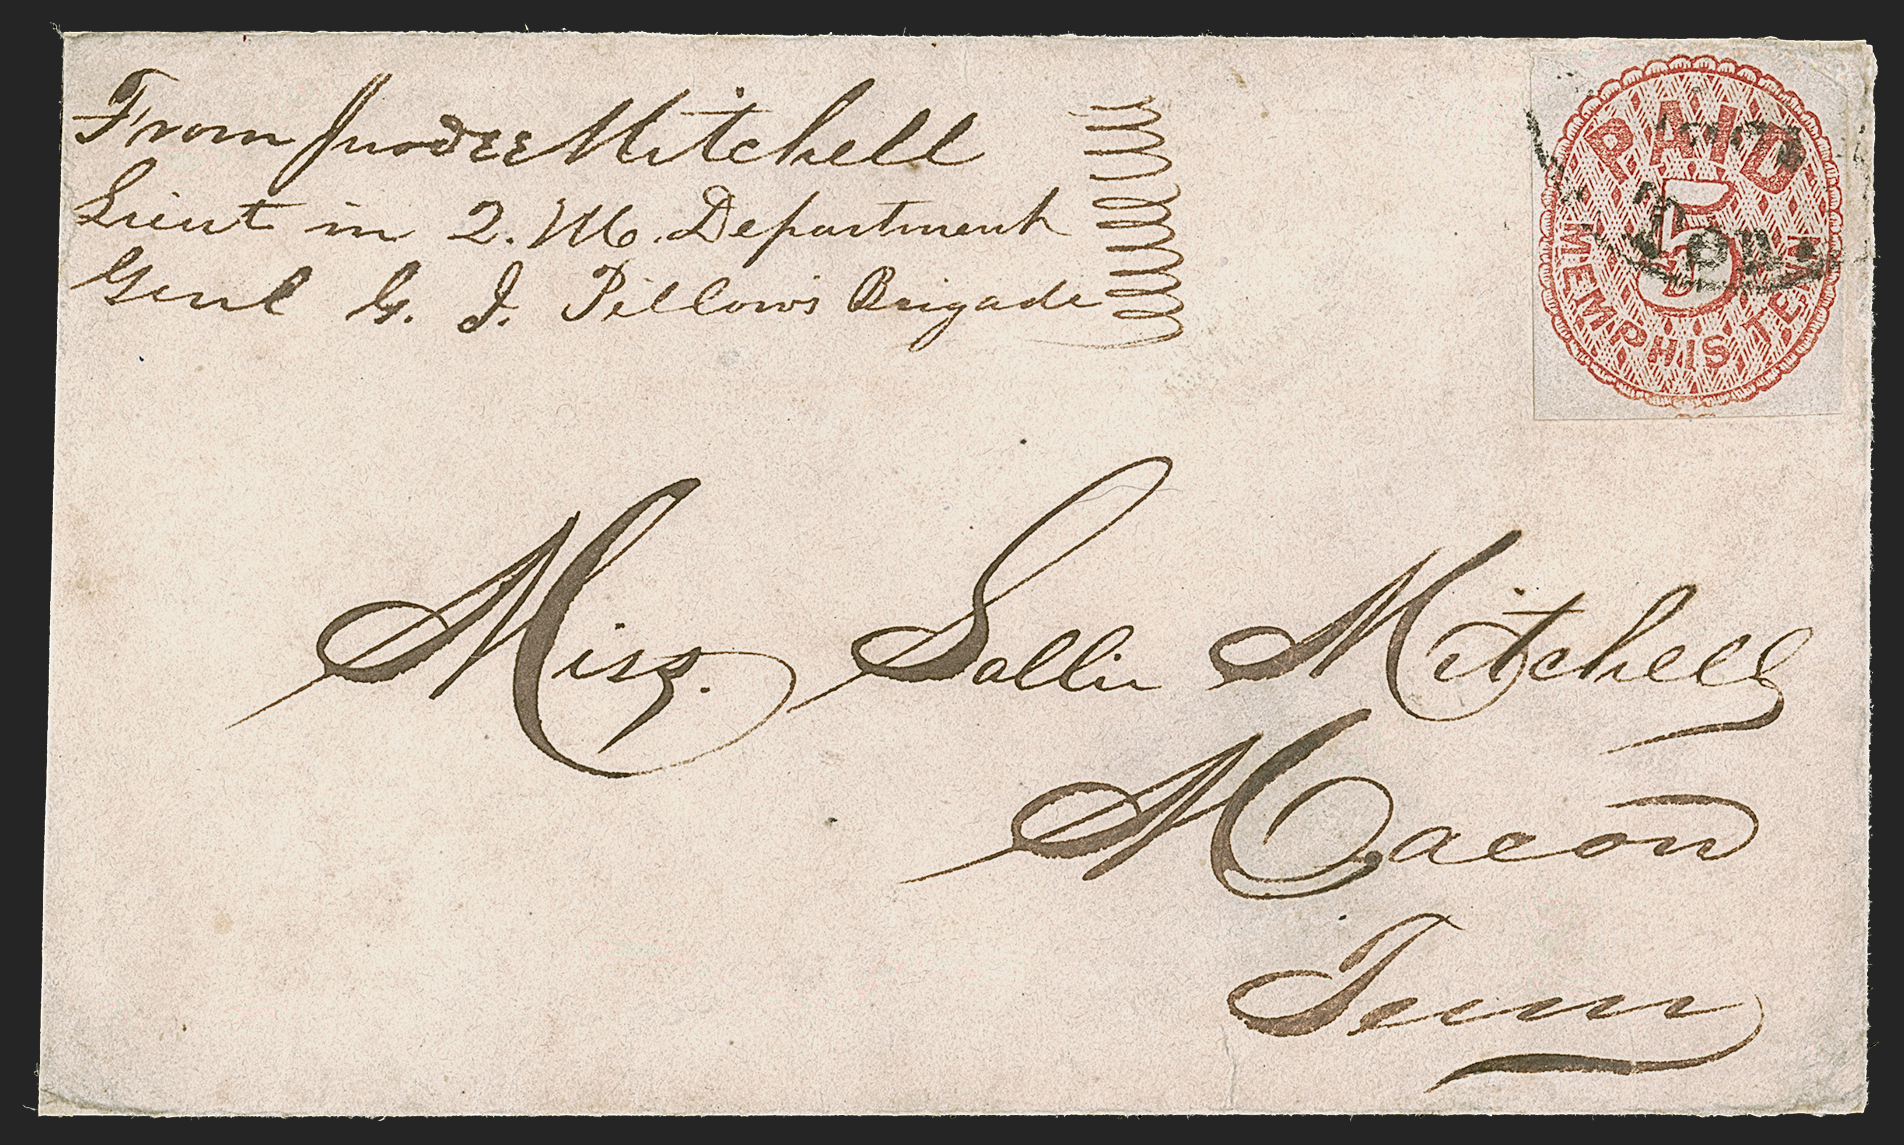 From Mitchell
Lieut in Q. M. Department
Genl G. J. Pillow's Brigade
PAID
5
MEMPHIS TENN
Ten.
Miss. Sallie Mitchell
Macon
Tenn